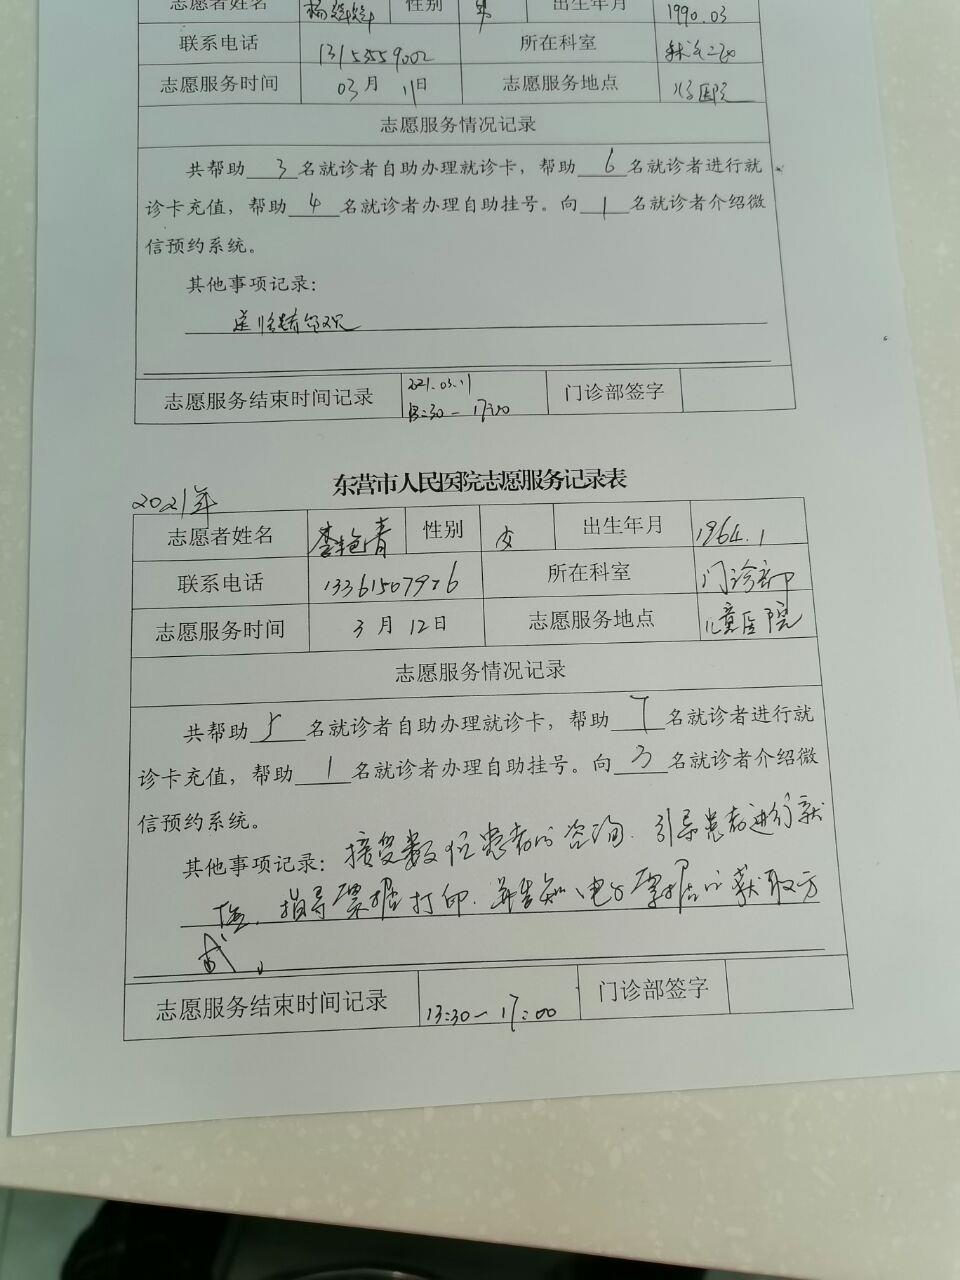 志愿者姓名 杨 性别 男 出生年月 1990.03
联系电话 13153559002 所在科室
志愿服务时间 03月11日 志愿服务地点 儿童医院
志愿服务情况记录
共帮助3名就诊者自助办理就诊卡，帮助6名就诊者进行就
诊卡充值，帮助4名就诊者办理自助挂号。向1名就诊者介绍微
信预约系统。
其他事项记录：
志愿服务结束时间记录 2021.03.11 门诊部签字
13:30－17:00
东营市人民医院志愿服务记录表
2021年
志愿者姓名 李艳青 性别 女 出生年月 1964.1
联系电话 13361507926 所在科室 门诊部
志愿服务时间 3月12日 志愿服务地点 儿童医院
志愿服务情况记录
共帮助5名就诊者自助办理就诊卡，帮助7名就诊者进行就
诊卡充值，帮助1名就诊者办理自助挂号。向3名就诊者介绍微
信预约系统。
其他事项记录：接受数位患者的咨询．引导患者进行就
诊．指导票据打印．并告知电子票据的获取方
式。
志愿服务结束时间记录 13:30－17:00 门诊部签字